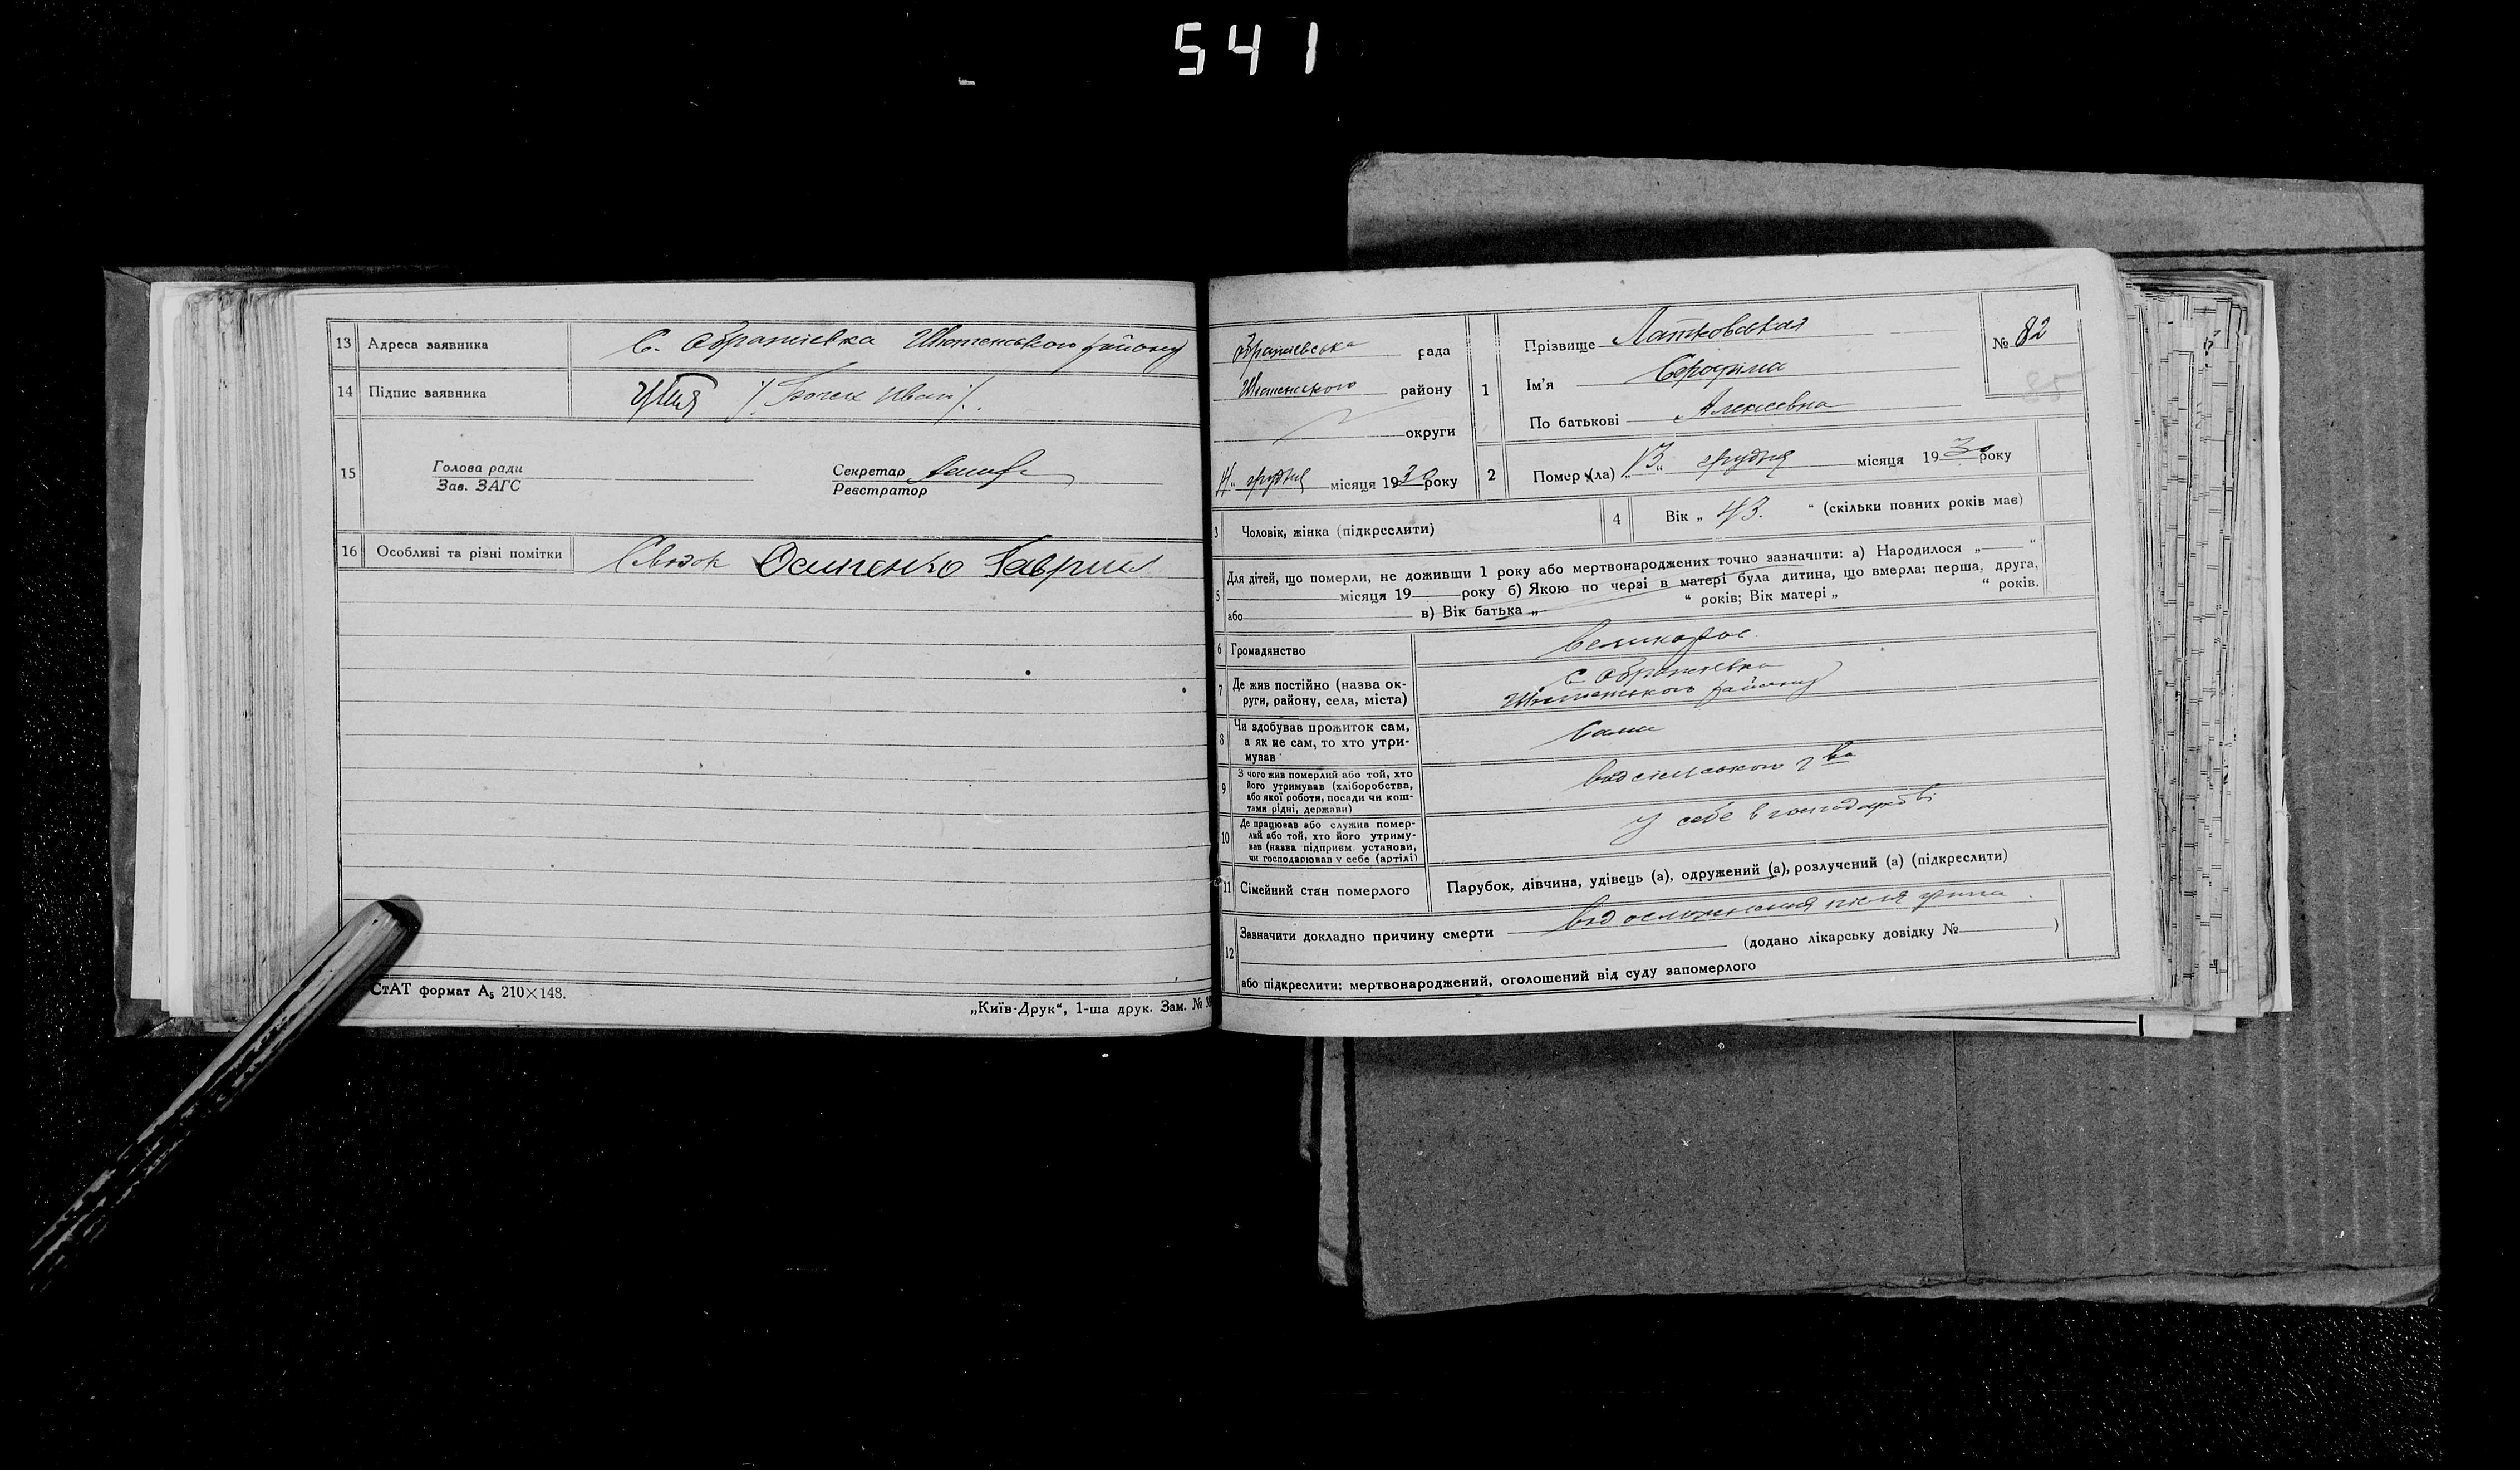 541
13 Адреса заявника С. Ображіевка Шостенського району
14 Підпис заявника Іван
15 Голова ради
Зав. ЗАГС
Секретар
Реєстратор
16 Особливі та різні помітки Осипенко Гаврил
СтАТ формат А5 210×148.
„Київ-Друк“, 1-ша друк. Зам. №
Ображіевська рада
Шостенського району
округи
14 „ грудня місяця 1930 року
1 Прізвище Латковская
Ім'я
По батькові Алексеевна
№ 82
85
2 Помер (ла) „13„ грудня місяця 1930 року
3 Чоловік, жінка (підкреслити)
4 Вік „ 43. “ (скільки повних років має)
5 Для дітей, що померли, не доживши 1 року або мертвонароджених точно зазначити: а) Народилося „ “
місяця 19 року б) Якою по черзі в матері була дитина, що вмерла: перша, друга,
або в) Вік батька „ “ років; Вік матері „ “ років.
6 Громадянство великорос.
7 Де жив постійно (назва округи, району, села, міста)
с. Ображіевка
Шостенського району
8 Чи здобував прожиток сам, а як не сам, то хто утримував
сами
9 З чого жив померлий або той, хто його утримував (хліборобства, або якої роботи, посади чи коштами рідні, держави)
від сільського г-ва
10 Де працював або служив померлий або той, хто його утримував (назва підприєм. установи, чи господарював у себе (артілі)
у себе в господарстві
11 Сімейний стан померлого Парубок, дівчина, удівець (а), одружений (а), розлучений (а) (підкреслити)
12 Зазначити докладно причину смерти від осложнення після грипа
(додано лікарську довідку № )
або підкреслити: мертвонароджений, оголошений від суду запомерлого